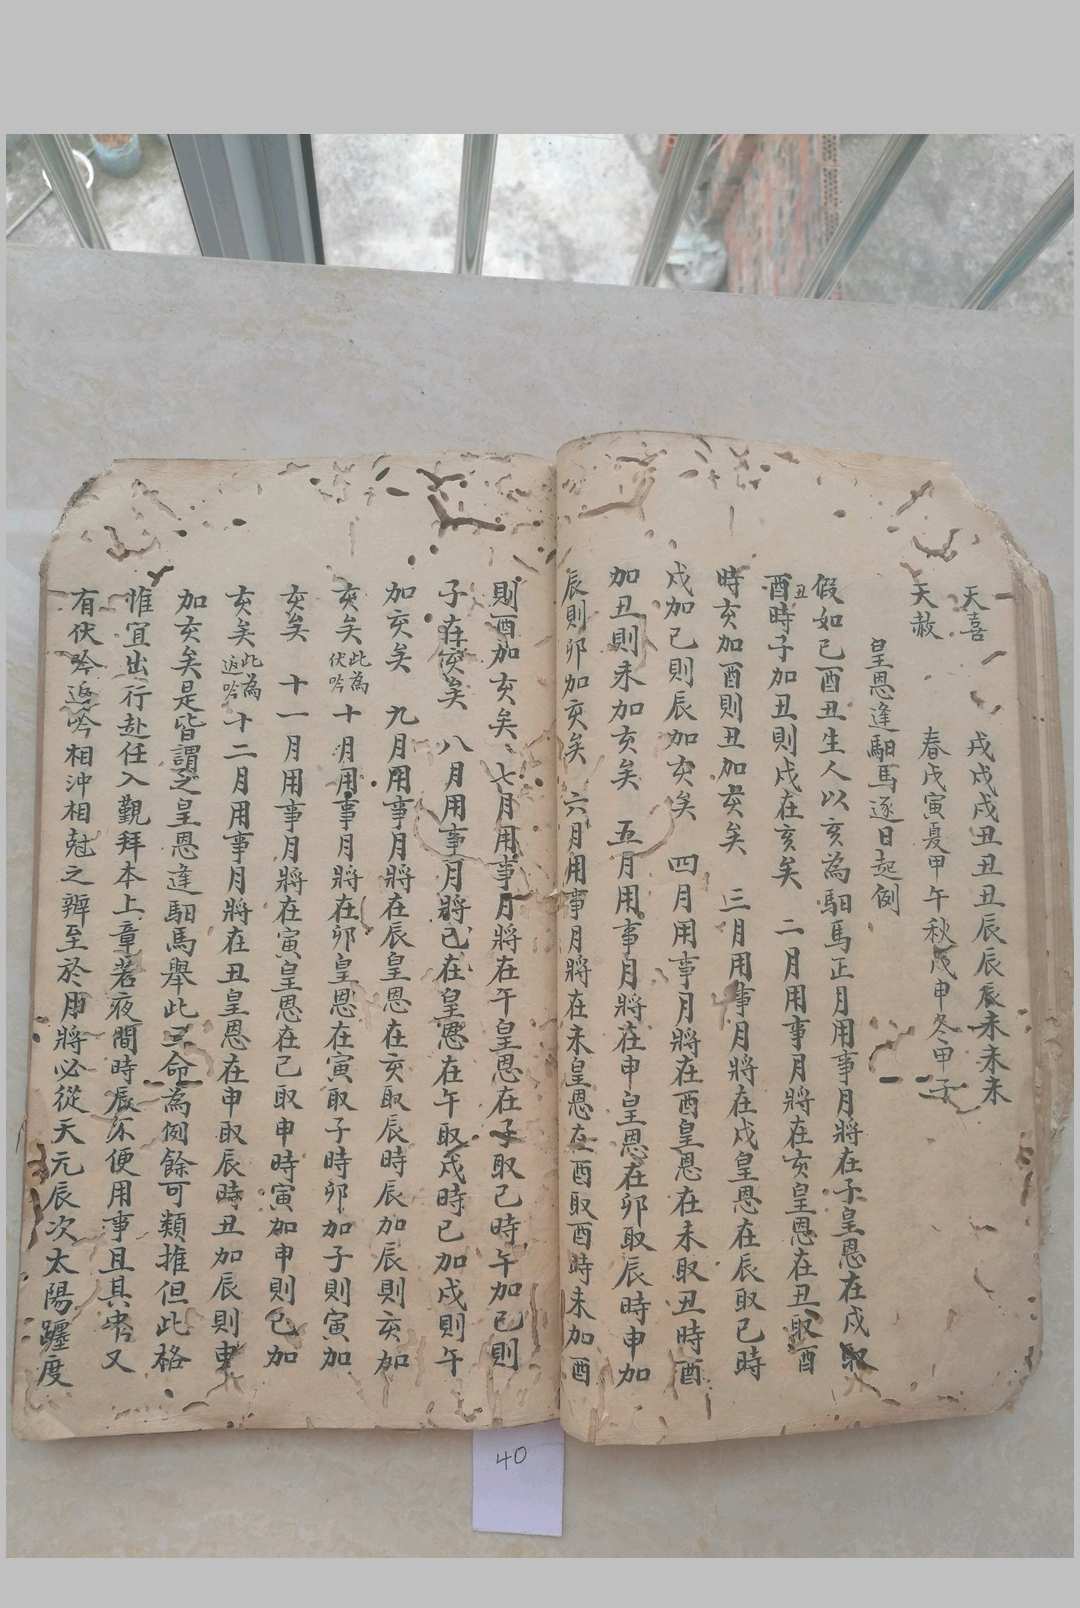 天喜 戌戌戌丑丑丑辰辰辰未未未
天赦 春戊寅夏甲午秋戊申冬甲子
皇恩逢馹馬逐日起例
假如己酉丑生人以亥為馹馬正月用事月將在子皇恩在戌取
丑
酉時子加丑則戌在亥矣 二月用事月將在亥皇恩在丑取酉
時亥加酉則丑加亥矣 三月用事月將在戌皇恩在辰取巳時
戌加巳則辰加亥矣 四月用事月將在酉皇恩在未取丑時酉
加丑則未加亥矣 五月用事月將在申皇恩在卯取辰時申加
辰則卯加亥矣 六月用事月將在未皇恩在酉取酉時未加酉
則酉加亥矣 七月用事月將在午皇恩在子取巳時午加巳則
子在亥矣 八月用事月將巳在皇恩在午取戌時巳加戌則午
加亥矣 九月用事月將在辰皇恩在亥取辰時辰加辰則亥加
亥矣此為伏吟 十月用事月將在卯皇恩在寅取子時卯加子則寅加
亥矣 十一月用事月將在寅皇恩在巳取申時寅加申則巳加
亥矣此為返吟 十二月用事月將在丑皇恩在申取辰時丑加辰則申
加亥矣是皆謂之皇恩逢馹馬舉此一命為例餘可類推但此格
惟宜出行赴任入覲拜本上章若夜間時辰不便用事且其中又
有伏吟返吟相沖相尅之辨至於月將必從天元辰次太陽躔度
40